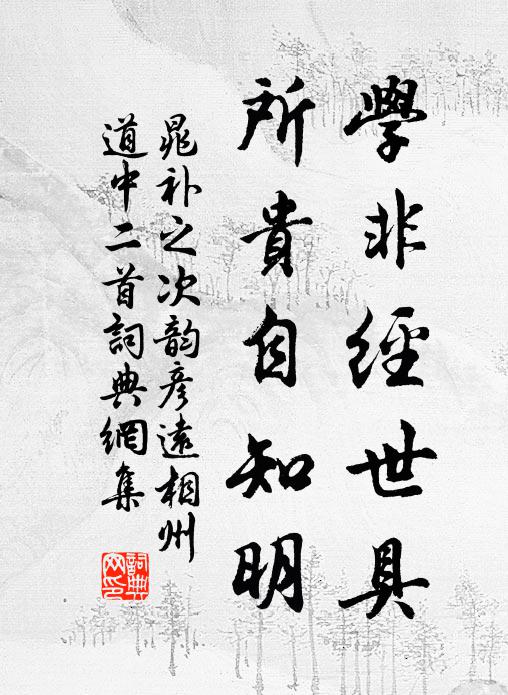 學非經世具
所貴自知明
晁补之次韵彦遠相州
道中二首詞典網集
詞典網印